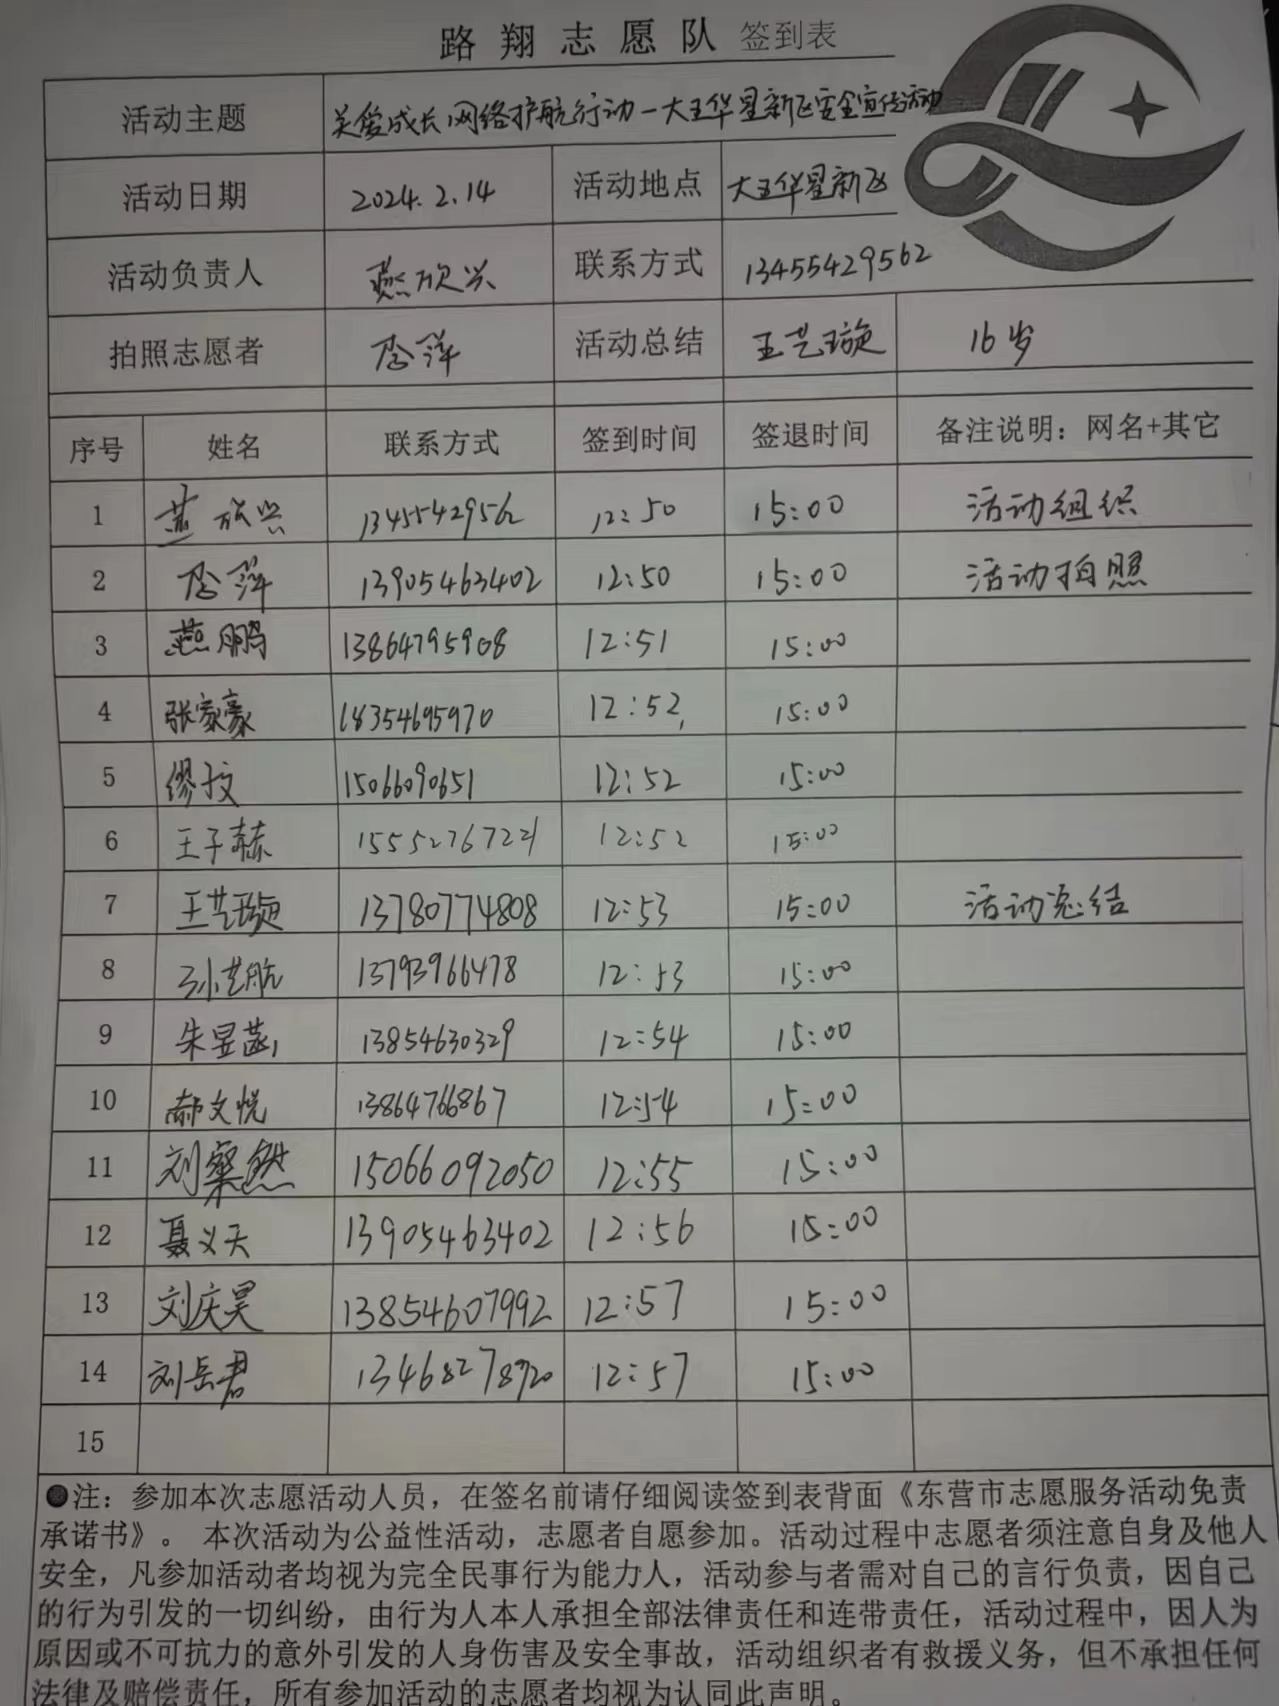 路翔志愿队 签到表
活动主题 关爱成长 网络护航行动一大王华星新飞安全宣传活动
活动日期 2024.2.14 活动地点 大王华星新飞
活动负责人 燕欣兴 联系方式 13455429562
拍照志愿者 李萍 活动总结 王艺璇 16岁
序号 姓名 联系方式 签到时间 签退时间 备注说明：网名+其它
1 燕欣兴 13455429562 12:50 15:00 活动组织
2 李萍 13905463402 12:50 15:00 活动拍照
3 燕鹏 13864795908 12:51 15:00
4 张家豪 18354695970 12:52 15:00
5 缪文 15066090651 12:52 15:00
6 王子赫 15552767221 12:52 15:00
7 王艺璇 13780774808 12:53 15:00 活动总结
8 孙艺航 13793966478 12:53 15:00
9 朱昱菡 13854630329 12:54 15:00
10 郝文悦 13864766867 12:54 15:00
11 刘粲然 15066092050 12:55 15:00
12 聂义天 13905463402 12:56 15:00
13 刘庆昊 13854607992 12:57 15:00
14 刘岳君 13468278920 12:57 15:00
15
●注：参加本次志愿活动人员，在签名前请仔细阅读签到表背面《东营市志愿服务活动免责
承诺书》。 本次活动为公益性活动，志愿者自愿参加。活动过程中志愿者须注意自身及他人
安全，凡参加活动者均视为完全民事行为能力人，活动参与者需对自己的言行负责，因自己
的行为引发的一切纠纷，由行为人本人承担全部法律责任和连带责任，活动过程中，因人为
原因或不可抗力的意外引发的人身伤害及安全事故，活动组织者有救援义务，但不承担任何
法律及赔偿责任，所有参加活动的志愿者均视为认同此声明。